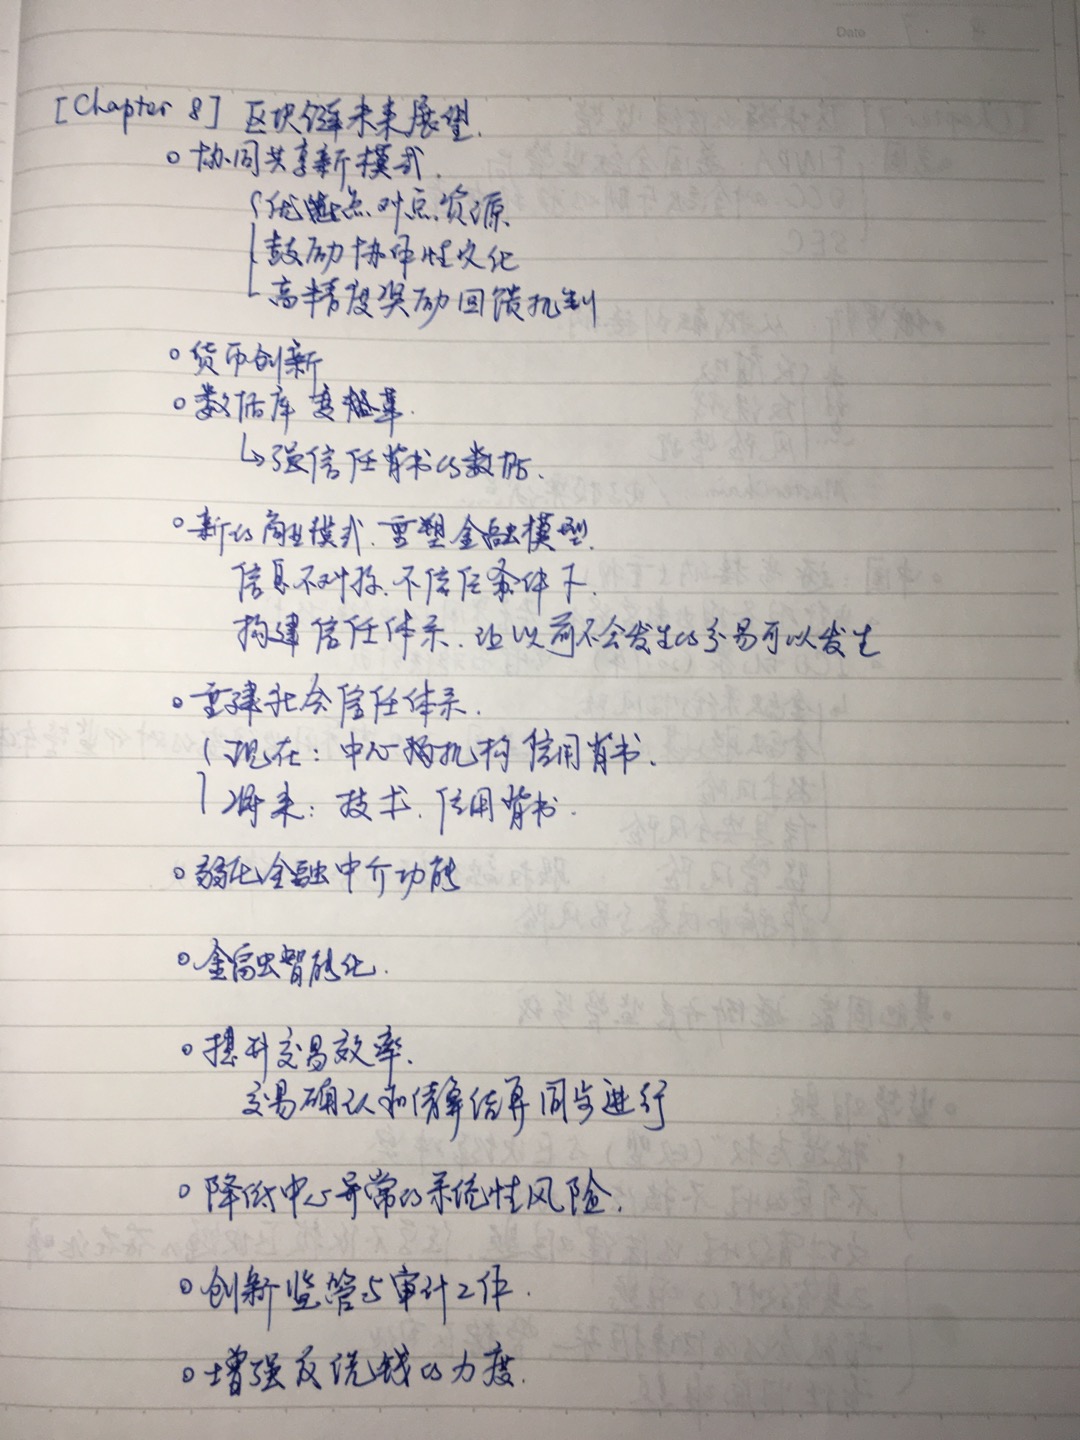 Date
[Chapter 8] 区块链未来展望.
协同共享新模式.
优点对点资源
鼓励协作性文化
高精度奖励回馈机制
货币创新
数据库变革.
↳强信任背书的数据.
新的商业模式.重塑金融模型.
信息不对称.不信任条件下.
构建信任体系.让以前不会发生的交易可以发生
重建社会信任体系.
现在:中心机构信用背书.
将来:技术.信用背书.
弱化金融中介功能
金融智能化.
提升交易效率.
交易确认和清算结算同步进行
降低中心异常的系统性风险.
创新监管与审计工作.
增强反洗钱的力度.